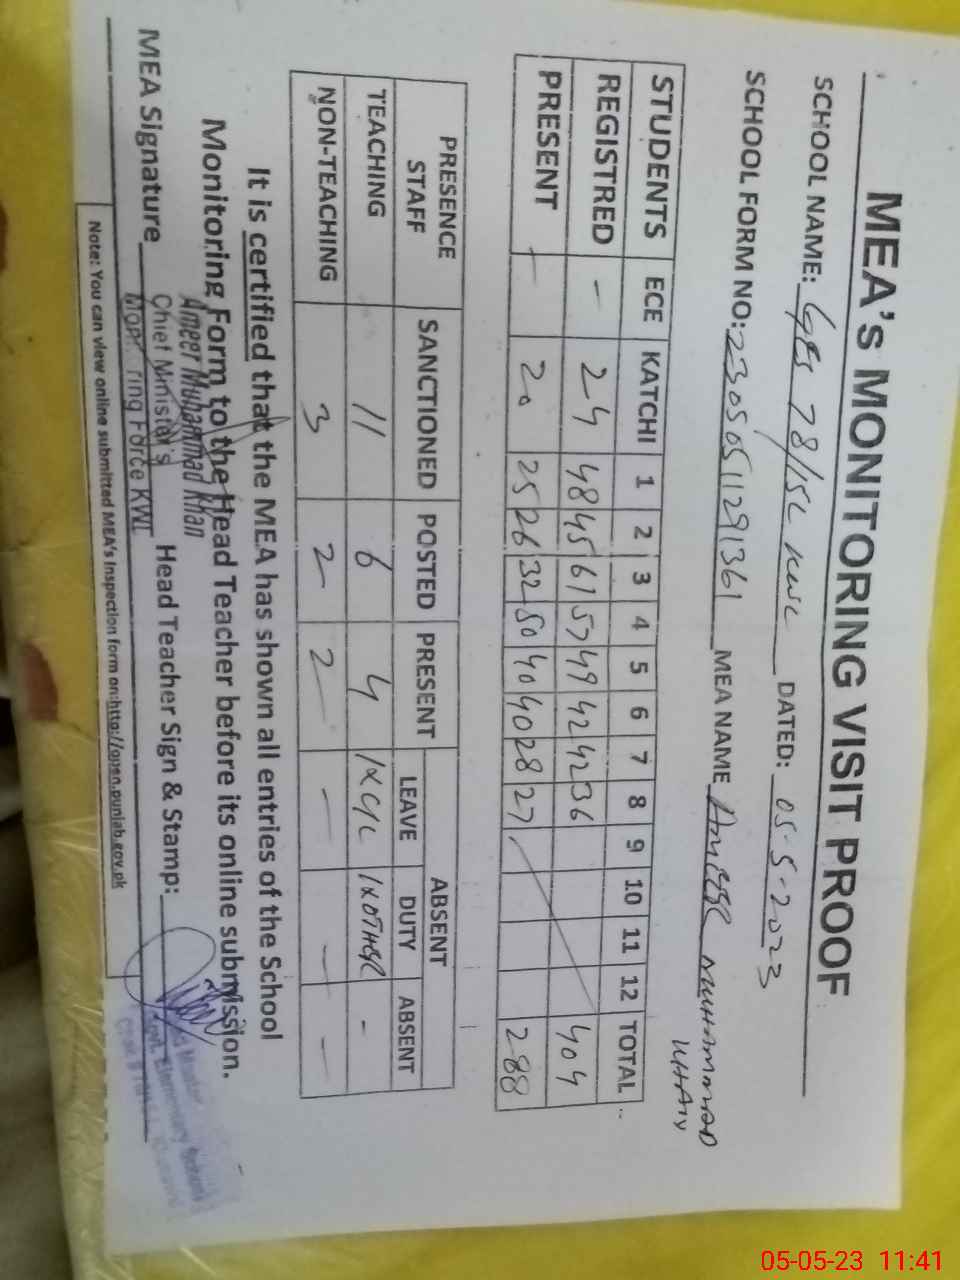 MEA's MONITORING VISIT PROOF
SCHOOL NAME: GES 78/15L KWL DATED: 05-5-2023
SCHOOL FORM NO: 23050511291361 MEA NAME AMEER MUHAMMAD KHAN
STUDENTS ECE KATCHI 1 2 3 4 5 6 7 8 9 10 11 12 TOTAL
REGISTRED - 24 48 45 61 57 49 42 42 36 404
PRESENT - 20 25 26 32 50 40 40 28 27 288
PRESENCE STAFF SANCTIONED POSTED PRESENT ABSENT
LEAVE DUTY ABSENT
TEACHING 11 6 4 1XC/L 1XOTHER -
NON-TEACHING 3 2 2 - - -
It is certified that the MEA has shown all entries of the School
Monitoring Form to the Head Teacher before its online submission.
Ameer Muhammad Khan
Chief Minister's
Monitoring Force KWL
MEA Signature Head Teacher Sign & Stamp:
Govt. Elementary School
Note: You can view online submitted MEA's Inspection form on:http://open.punjab.gov.pk
05-05-23 11:41